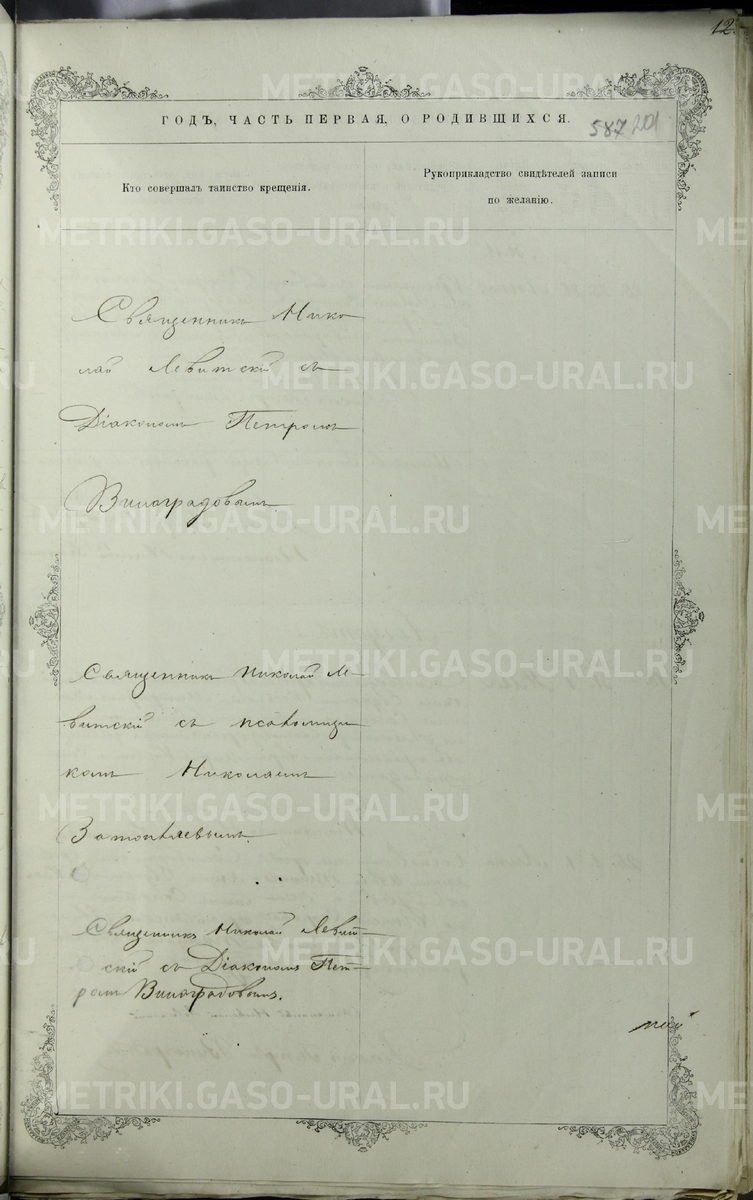 12.
ГОДЪ, ЧАСТЬ ПЕРВАЯ, О РОДИВШИХСЯ.
587 201
Кто совершалъ таинство крещенія.
Рукоприкладство свидѣтелей записи
по желанію.
Священникъ Нико
лай Левитскій съ
Діакономъ Петромъ
Виноградовымъ
Священникъ Николай Ле-
витскій съ псаломщи
комъ Николаемъ
Священникъ Николай Левит-
скій съ Діакономъ Пет-
ромъ Виноградовымъ.
METRIKI.GASO-URAL.RU